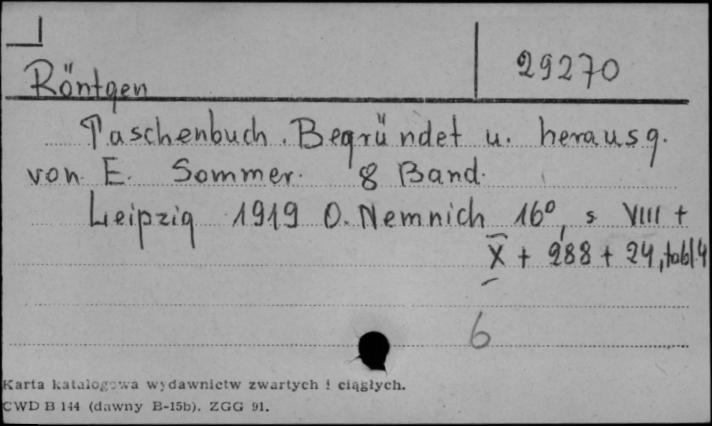 29270
Röntgen
Taschenbuch. Begründet u. herausg.
von E. Sommer. 8 Band.
Leipzig 1919 O. Nemnich 16°, s VIII +
X + 288 + 24, tabl. 4
6
Karta katalogowa wydawnictw zwartych i ciągłych.
CWD B 144 (dawny B-15b). ZGG 91.